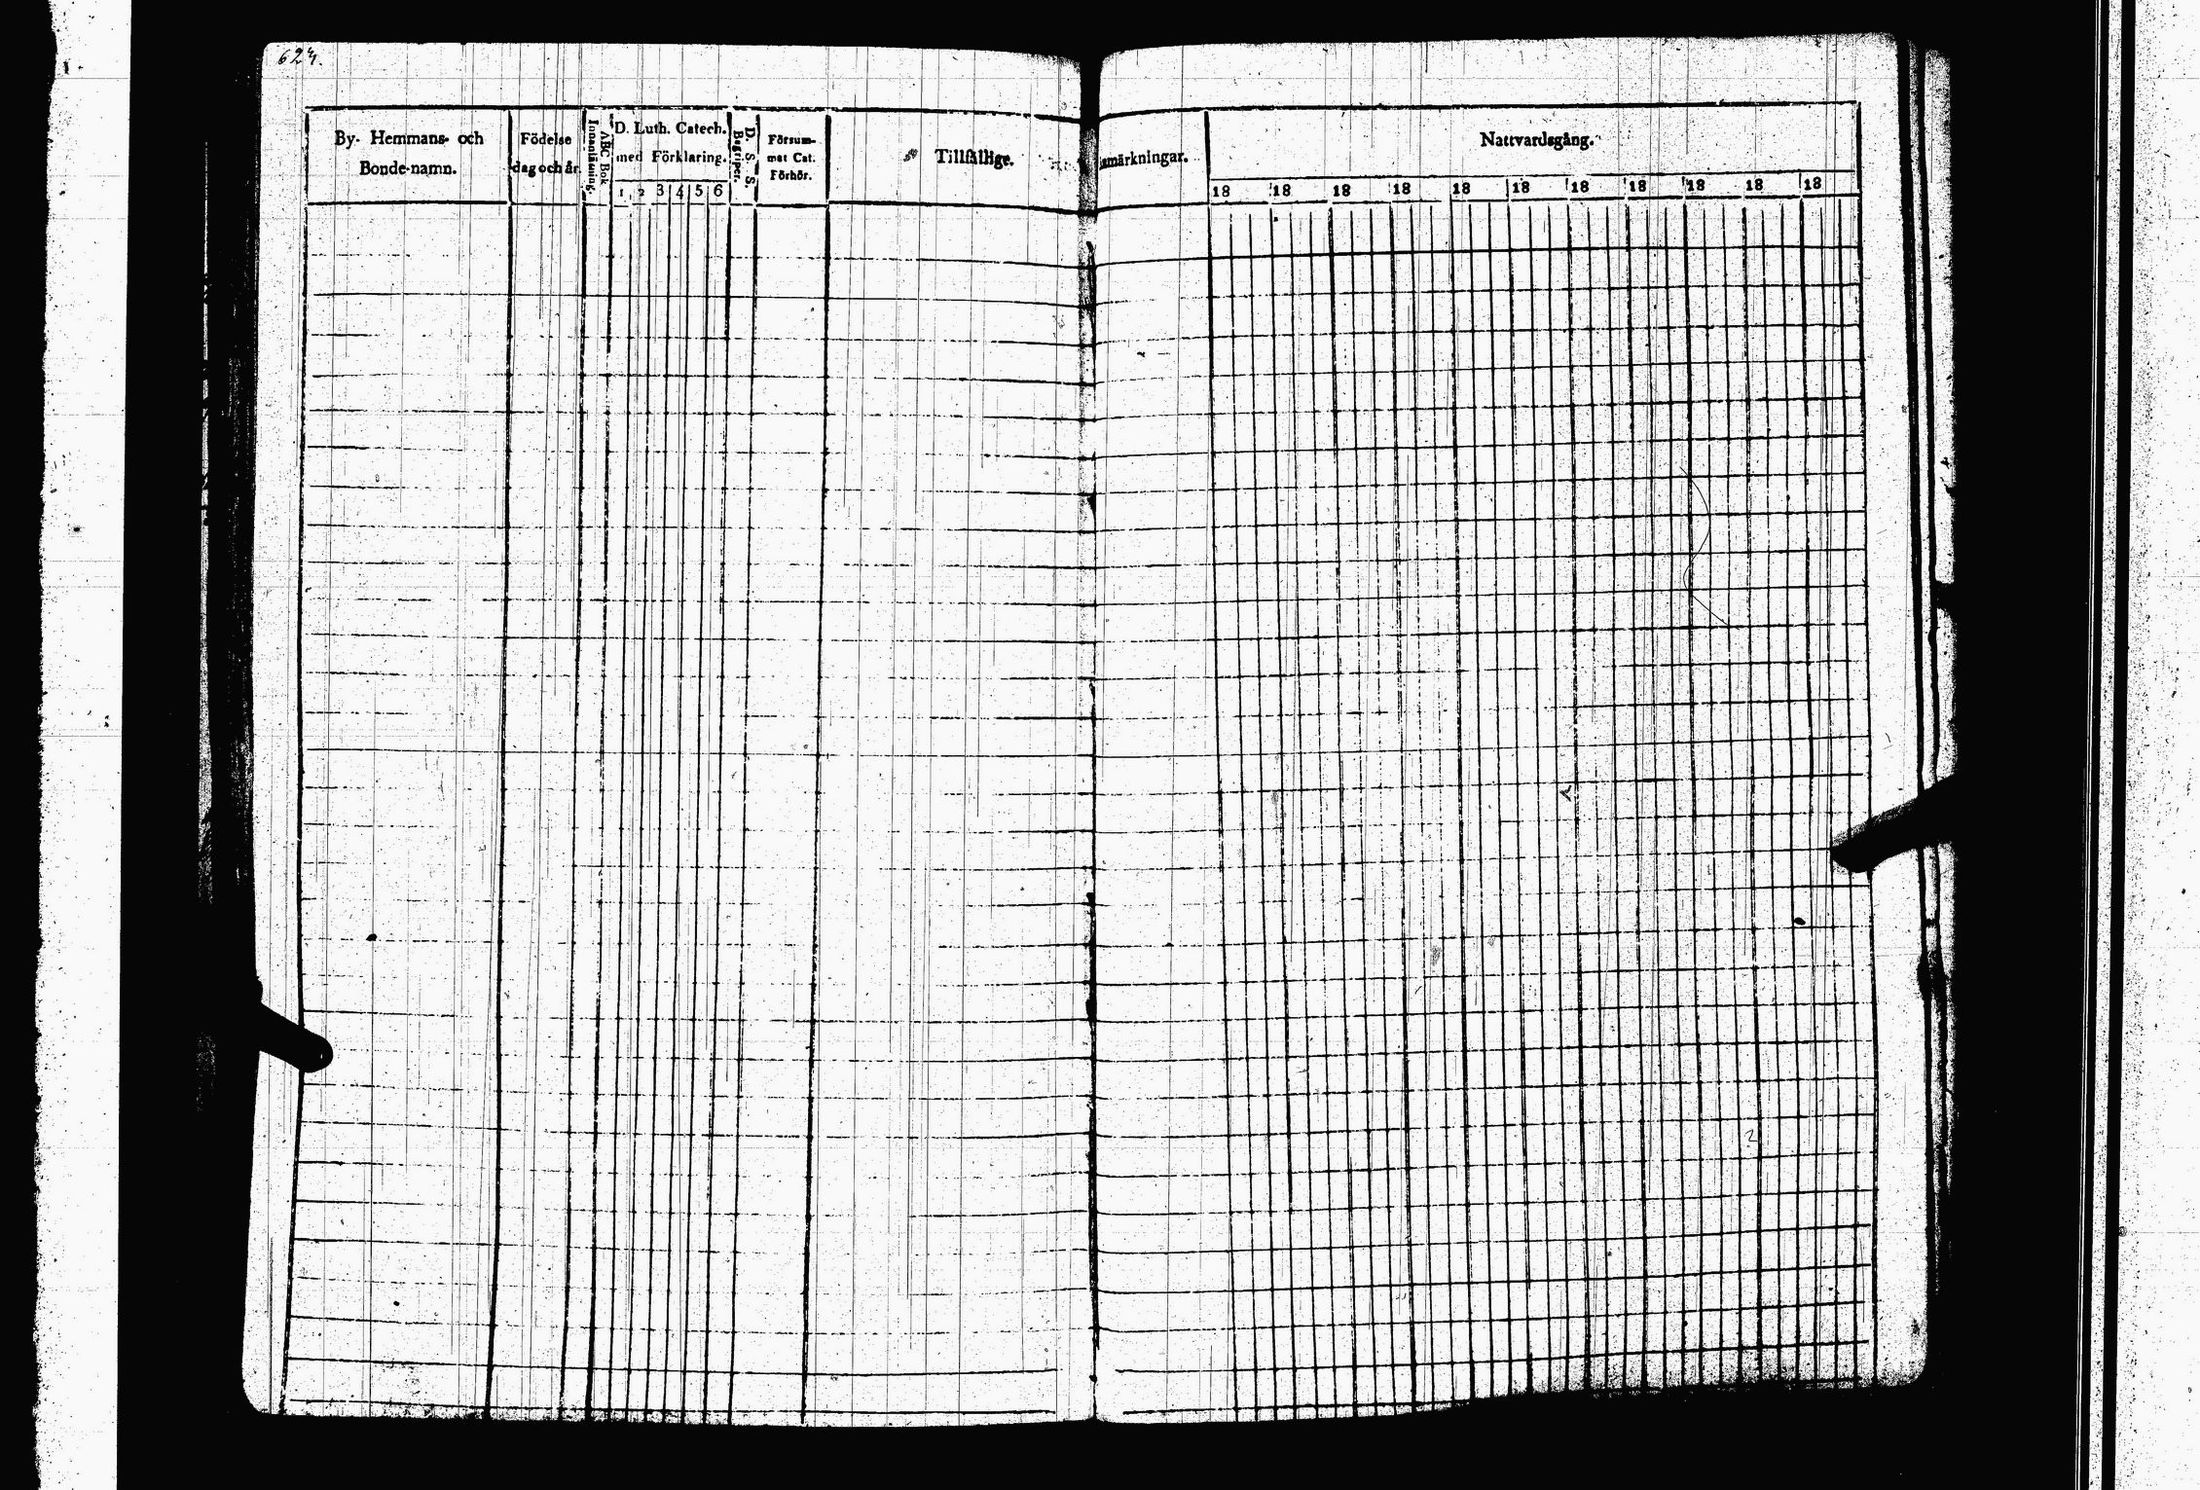 624.
By- Hemmans- och
Bonde-namn.
Födelse
dag och år.
Innanläsning.
ABC Bok
D. Luth. Catech.
med Förklaring.
1 2 3 4 5 6
D. S. S.
Begriper.
Försum-
mat Cat.
Förhör.
Tillfällige.
märkningar.
Nattvardsgång.
18 18 18 18 18 18 18 18 18 18 18